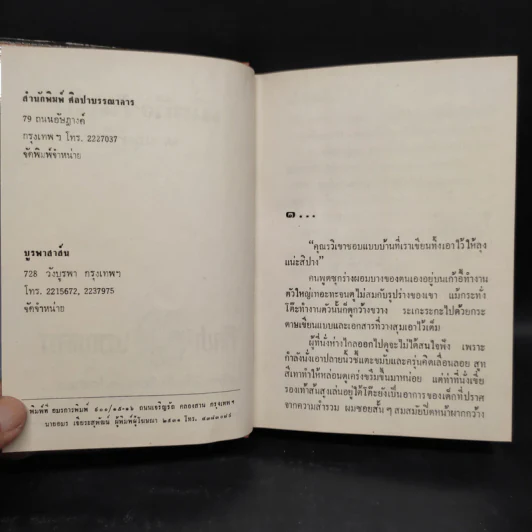 สำนักพิมพ์ ศิลปาบรรณาคาร
79 ถนนอัษฎางค์
กรุงเทพฯ โทร. 2227037
จัดพิมพ์จำหน่าย
บูรพาสาส์น
728 วังบูรพา กรุงเทพฯ
โทร. 2215672, 2237975
จัดจำหน่าย
พิมพ์ที่ อมรการพิมพ์ ๕๐๐/๑๕-๑๖ ถนนเจริญรัถ คลองสาน กรุงเทพฯ
นายอมร เจียรสุพัฒน์ ผู้พิมพ์ผู้โฆษณา ๒๕๓๑ โทร.
๑...
"คุณรวิเขาชอบแบบบ้านที่เราเขียนทิ้งเอาไว้ ให้ลุง
แน่ะสิปาง"
คนพูดซุกร่างผอมบางของตนเองอยู่บนเก้าอี้ทำงาน
ตัวใหญ่เทอะทะจนดูไม่สมกับรูปร่างของเขา แม้กระทั่ง
โต๊ะทำงานตัวนั้นก็ดูกว้างขวาง ระเกะระกะไปด้วยกระ
ดาษเขียนแบบและเอกสารที่วางสุมเอาไว้เต็ม
ผู้ที่นั่งห่างไกลออกไปดูจะไม่ได้สนใจฟัง เพราะ
กำลังนั่งเอาปลายนิ้วชี้แตะขมับและครุ่นคิดเลื่อนลอย สูท
สีเทาทำให้หล่อนดูเคร่งขรึมขึ้นมาหน่อย แต่ท่าที่นั่งเขี่ย
รองเท้าส้นสูงเล่นอยู่ใต้โต๊ะยังเป็นอาการของเด็กที่ปราศ
จากความสำรวม ผมซอยสั้น ๆ สมสมัยปิดหน้าผากกว้าง